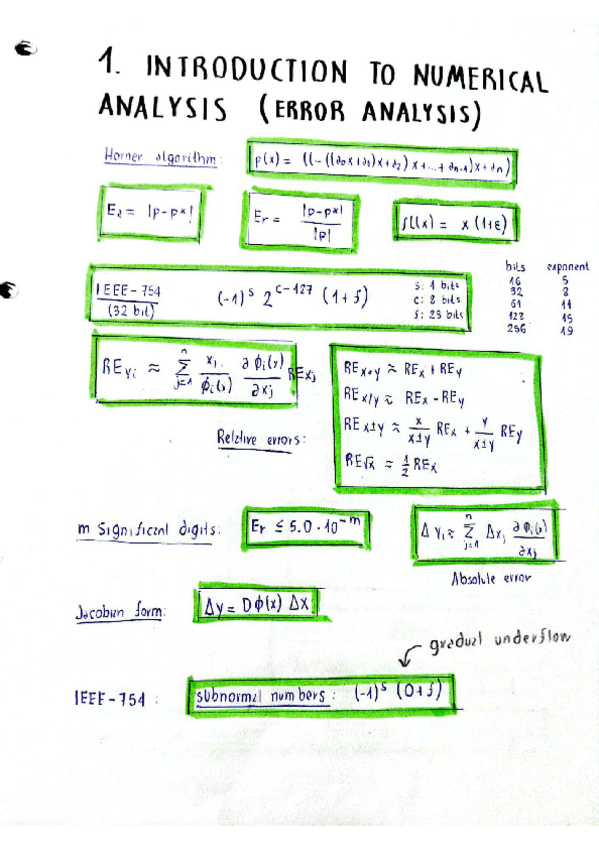 1. INTRODUCTION TO NUMERICAL
ANALYSIS (ERROR ANALYSIS)
Horner algorithm: p(x) = ((-((a0x+a1)x+a2)x+...+an-1)x+an)
Ea = |p-p*|
Er = |p-p*| / |p|
fl(x) = x(1+ε)
bits exponent
16 5
32 8
64 11
128 15
256 19
IEEE-754 (32 bit) (-1)^s 2^(c-127) (1+f)
s: 1 bits
c: 8 bits
f: 23 bits
REyi ≈ Σ_{j=1}^{n} xj/ϕi(x) ∂ϕi(x)/∂xj RExj
Relative errors:
REx•y ≈ REx + REy
REx/y ≈ REx - REy
REx±y ≈ x/(x±y) REx + y/(x±y) REy
RE√x ≈ 1/2 REx
m Significant digits: Er ≤ 5.0 · 10^-m
Δyi ≈ Σ_{j=1}^{n} Δxj ∂ϕi(x)/∂xj
Absolute error
Jacobian form: Δy = Dϕ(x) Δx
gradual underflow
IEEE-754: subnormal numbers: (-1)^s (0+f)